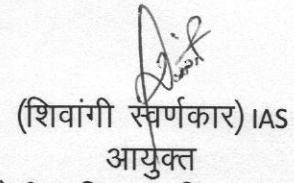 (शिवांगी स्वर्णकार) IAS
आयुक्त